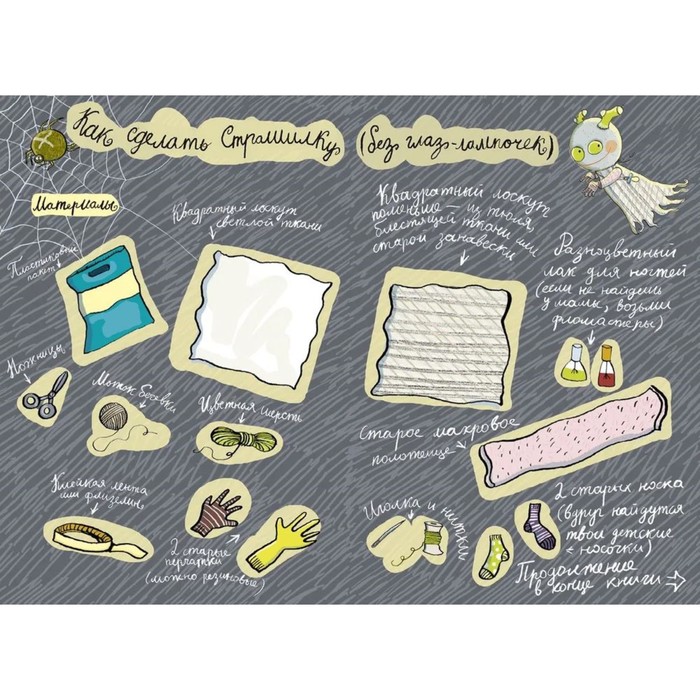 Как сделать Страшилку
(без глаз-лампочек)
Материалы
Пластиковый
пакет
Квадратный лоскут
светлой ткани
Ножницы
Моток бечёвки
Цветная шерсть
Клейкая лента
или флизелин
2 старые
перчатки
(можно резиновые)
Квадратный лоскут
поменьше — из тюля,
блестящей ткани или
старой занавески
Разноцветный
лак для ногтей
(если не найдёшь
у мамы, возьми
фломастеры)
Старое махровое
полотенце
Иголка и нитки
2 старых носка
(вдруг найдутся
твои детские
носочки)
Продолжение
в конце книги